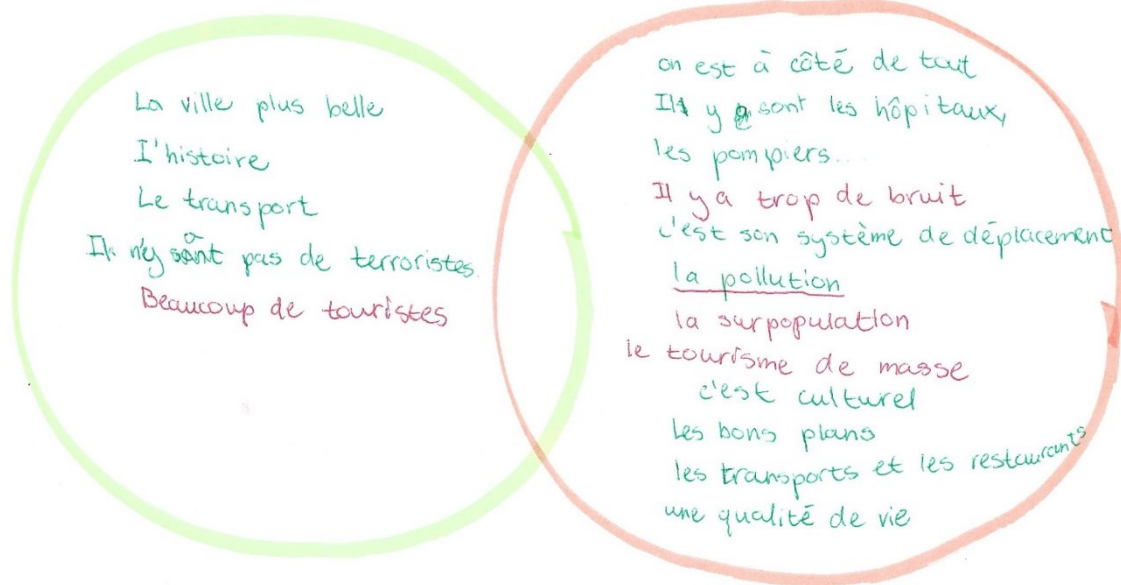 La ville plus belle
I'histoire
Le transport
Il n'y a pas de terroristes.
Beaucoup de touristes
on est à côté de tout
Il y sont les hôpitaux,
les pompiers...
Il y a trop de bruit
c'est son système de déplacement
la pollution
la surpopulation
le tourisme de masse
c'est culturel
Les bons plans
les transports et les restaurants
une qualité de vie